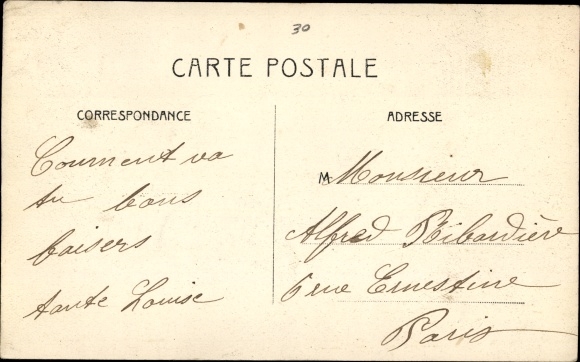 30
CARTE POSTALE
CORRESPONDANCE
Comment va
tu bons
baisers
tante Louise
ADRESSE
M Monsieur
Alfred Ribardière
6 rue Ernestine
Paris